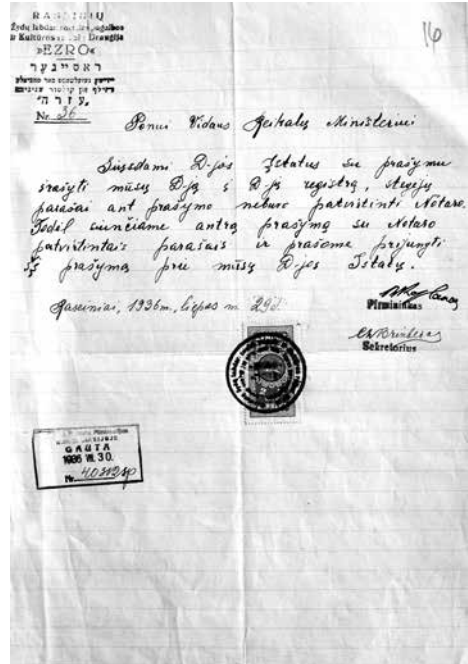 16
RASEINIŲ
Žydų
ir Kultūros Draugija
»EZRO«
ראסיינער
עזרה
Nr. 36
Ponui Vidaus Reikalų Ministeriui
Siųsdami D-jos Įstatus su prašymu
įrašyti mūsų D-ją į D-jų registrą, steigėjų
parašai ant prašymo nebuvo patvirtinti Notaro.
Todėl siunčiame antrą prašymą su Notaro
patvirtintais parašais ir prašome prijungti
šį prašymą prie mūsų D-jos Įstatų.
Raseiniai, 1936m., liepos m. 29d.
Pirmininkas
Sekretorius
GAUTA
1936 VII. 30.
Nr.